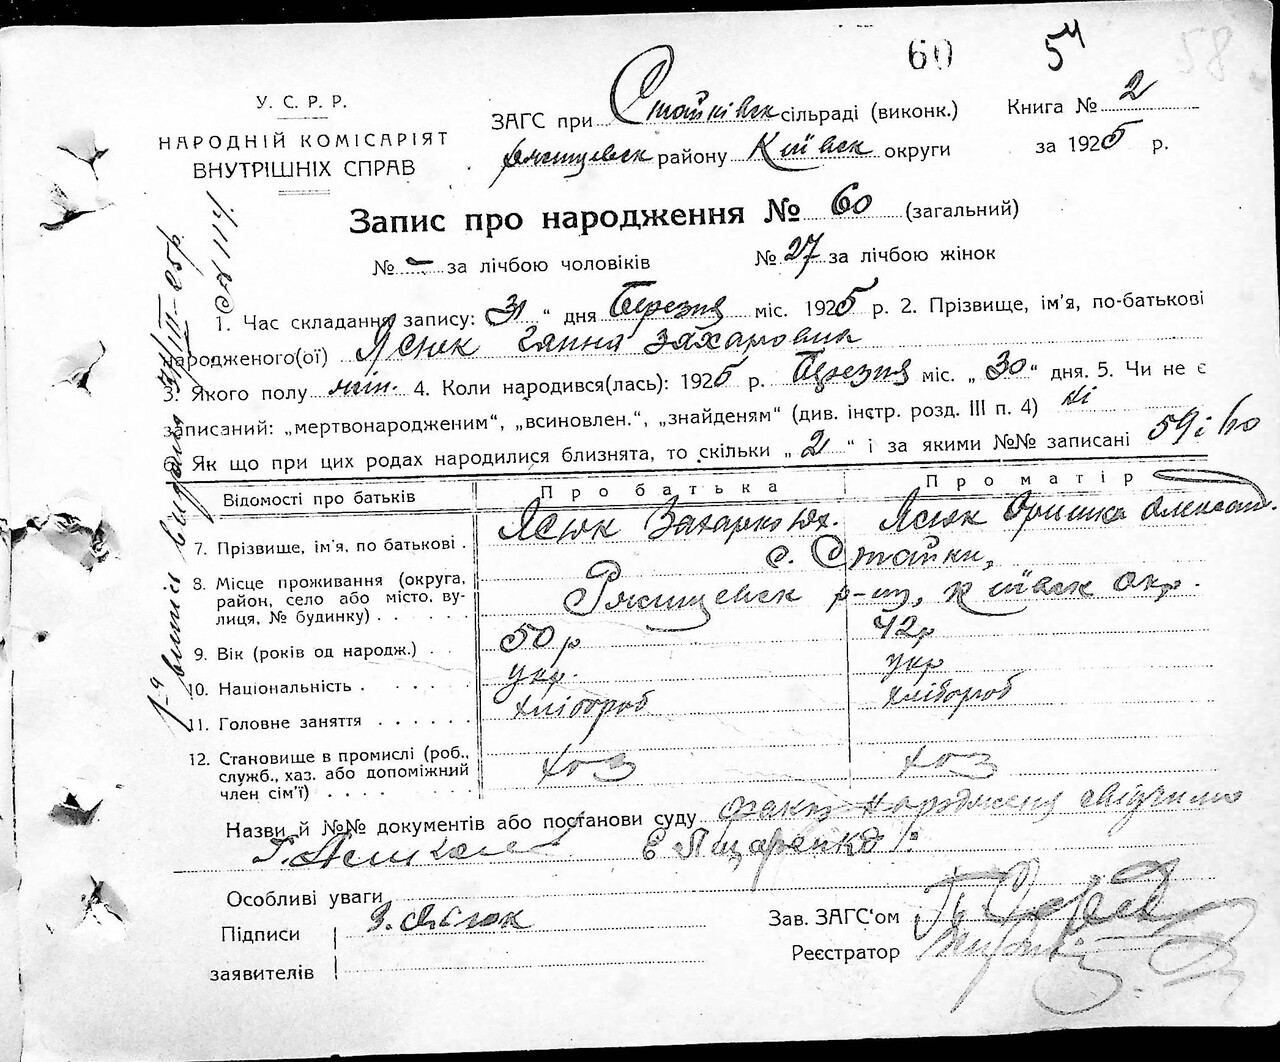 60 54 58
У. С. Р. Р.
НАРОДНІЙ КОМІСАРІЯТ
ВНУТРІШНІХ СПРАВ
ЗАГС при Стайківск сільраді (виконк.)
Ржищевск району Київск округи
Книга № 2
за 1925 р.
Запис про народження № 60 (загальний)
№ – за лічбою чоловіків № 27 за лічбою жінок
1. Час складання запису: 31 " дня Березня міс. 1925 р. 2. Прізвище, ім'я, по-батькові
народженого(ої) Ясюк Ганна Захаровна
3. Якого полу жін. 4. Коли народився(лась): 1925 р. Березня міс. „ 30 " дня. 5. Чи не є
записаний: „мертвонародженим", „всиновлен.", „знайденям" (див. інстр. розд. III п. 4) ні
6. Як що при цих родах народилися близнята, то скільки „ 2 " і за якими №№ записані 59 і 60
Відомості про батьків Про батька Про матір
7. Прізвище, ім'я, по батькові . Ясюк Захарко Юх. Ясюк Оришка Олександ.
8. Місце проживання (округа, район, село або місто, вулиця, № будинку) . . . . . . с. Стайки,
Ржищевск р-ну, Київск окр.
9. Вік (років од народж.) . . 50 р 42 р
10. Національність . . . . . укр. укр
11. Головне заняття . . . . . . хлібороб хлібороб
12. Становище в промислі (роб., служб., хаз. або допоміжний член сім'ї) . . . . . . . хоз хоз
Назви й №№ документів або постанови суду факт народженя свідчили
Є Пщаренко
Особливі уваги
Підписи заявителів З. Ясюк
Зав. ЗАГС'ом
Реєстратор
1-а випіс видана 31/III-25 р.
№ 114.